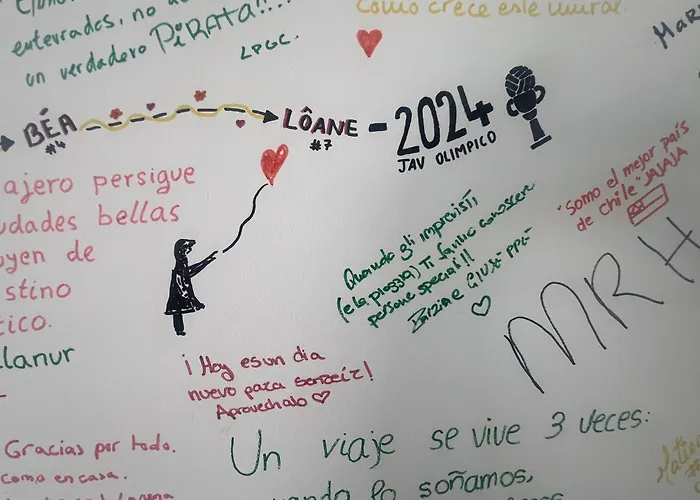 enterrados, no
un verdadero PiRATA!!...
LPGC.
como crece este mural.
BÉA
#4
LÔANE
#7
- 2024
JAV OLIMPICO
ajero persigue
udades bellas
uyen de
stino
ico.
llanur
Quando gli imprevisti
(e la pioggia) ti fanno conoscere
persone speciali!!
"Somo el mejor país
de chile" JAJAJA
MRH
¡ Hoy es un dia
nuevo para sonreír!
Aprovechalo
Gracias por todo.
como en casa.
Un viaje se vive 3 veces:
uando lo soñamos,